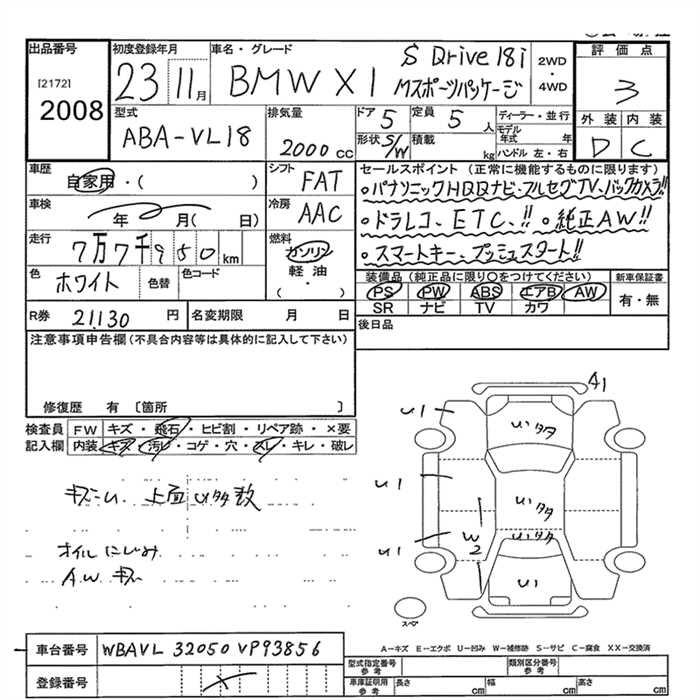 出品番号
[2172]
2008
初度登録年月
23 11月
車名・グレード
BMW X1
S Drive 18i
Mスポーツパッケージ
2WD
・
4WD
評価点
3
外装 内装
D C
型式
ABA-VL18
排気量
2000 cc
ドア 5
定員 5 人
形状 S/W
積載 kg
ディーラー・並行
モデル年式 年
ハンドル 左・右
車歴
自家用・( )
シフト
FAT
車検
年 月( 日)
冷房
AAC
走行
7万7千950 km
燃料
ガソリン
軽・油
・
( )
色
ホワイト
色替
色コード
セールスポイント (正常に機能するものに限ります)
・パナソニックHDDナビ・フルセグTV、バックカメラ!!
・ドラレコ、ETC、!! 。純正AW!!
・スマートキー、プッシュスタート!!
装備品 (純正品に限り○をつけてください)
PS PW ABS エアB AW
SR ナビ TV カワ
新車保証書
有・無
R券 21,130 円
名変期限 月 日
後日品
注意事項申告欄(不具合内容等は具体的に記入して下さい)
修復歴 有 〔箇所 〕
検査員
記入欄
FW キズ・飛石・ヒビ割・リペア跡・×要
内装 キズ・汚レ・コゲ・穴・スレ・キレ・破レ
キズこい 上面 U多数
オイルにじみ
A.W キズ
A1
U1
U多々
U1
U多々
U1
W2
U多々
U1
スペア
A−キズ E−エクボ U−凹み W−補修跡 S−サビ C−腐食 XX−交換済
車台番号
WBAVL 32050 VP93856
登録番号
型式指定番号
参考
類別区分番号
参考
車庫証明用
参考
長さ cm
幅 cm
高さ cm